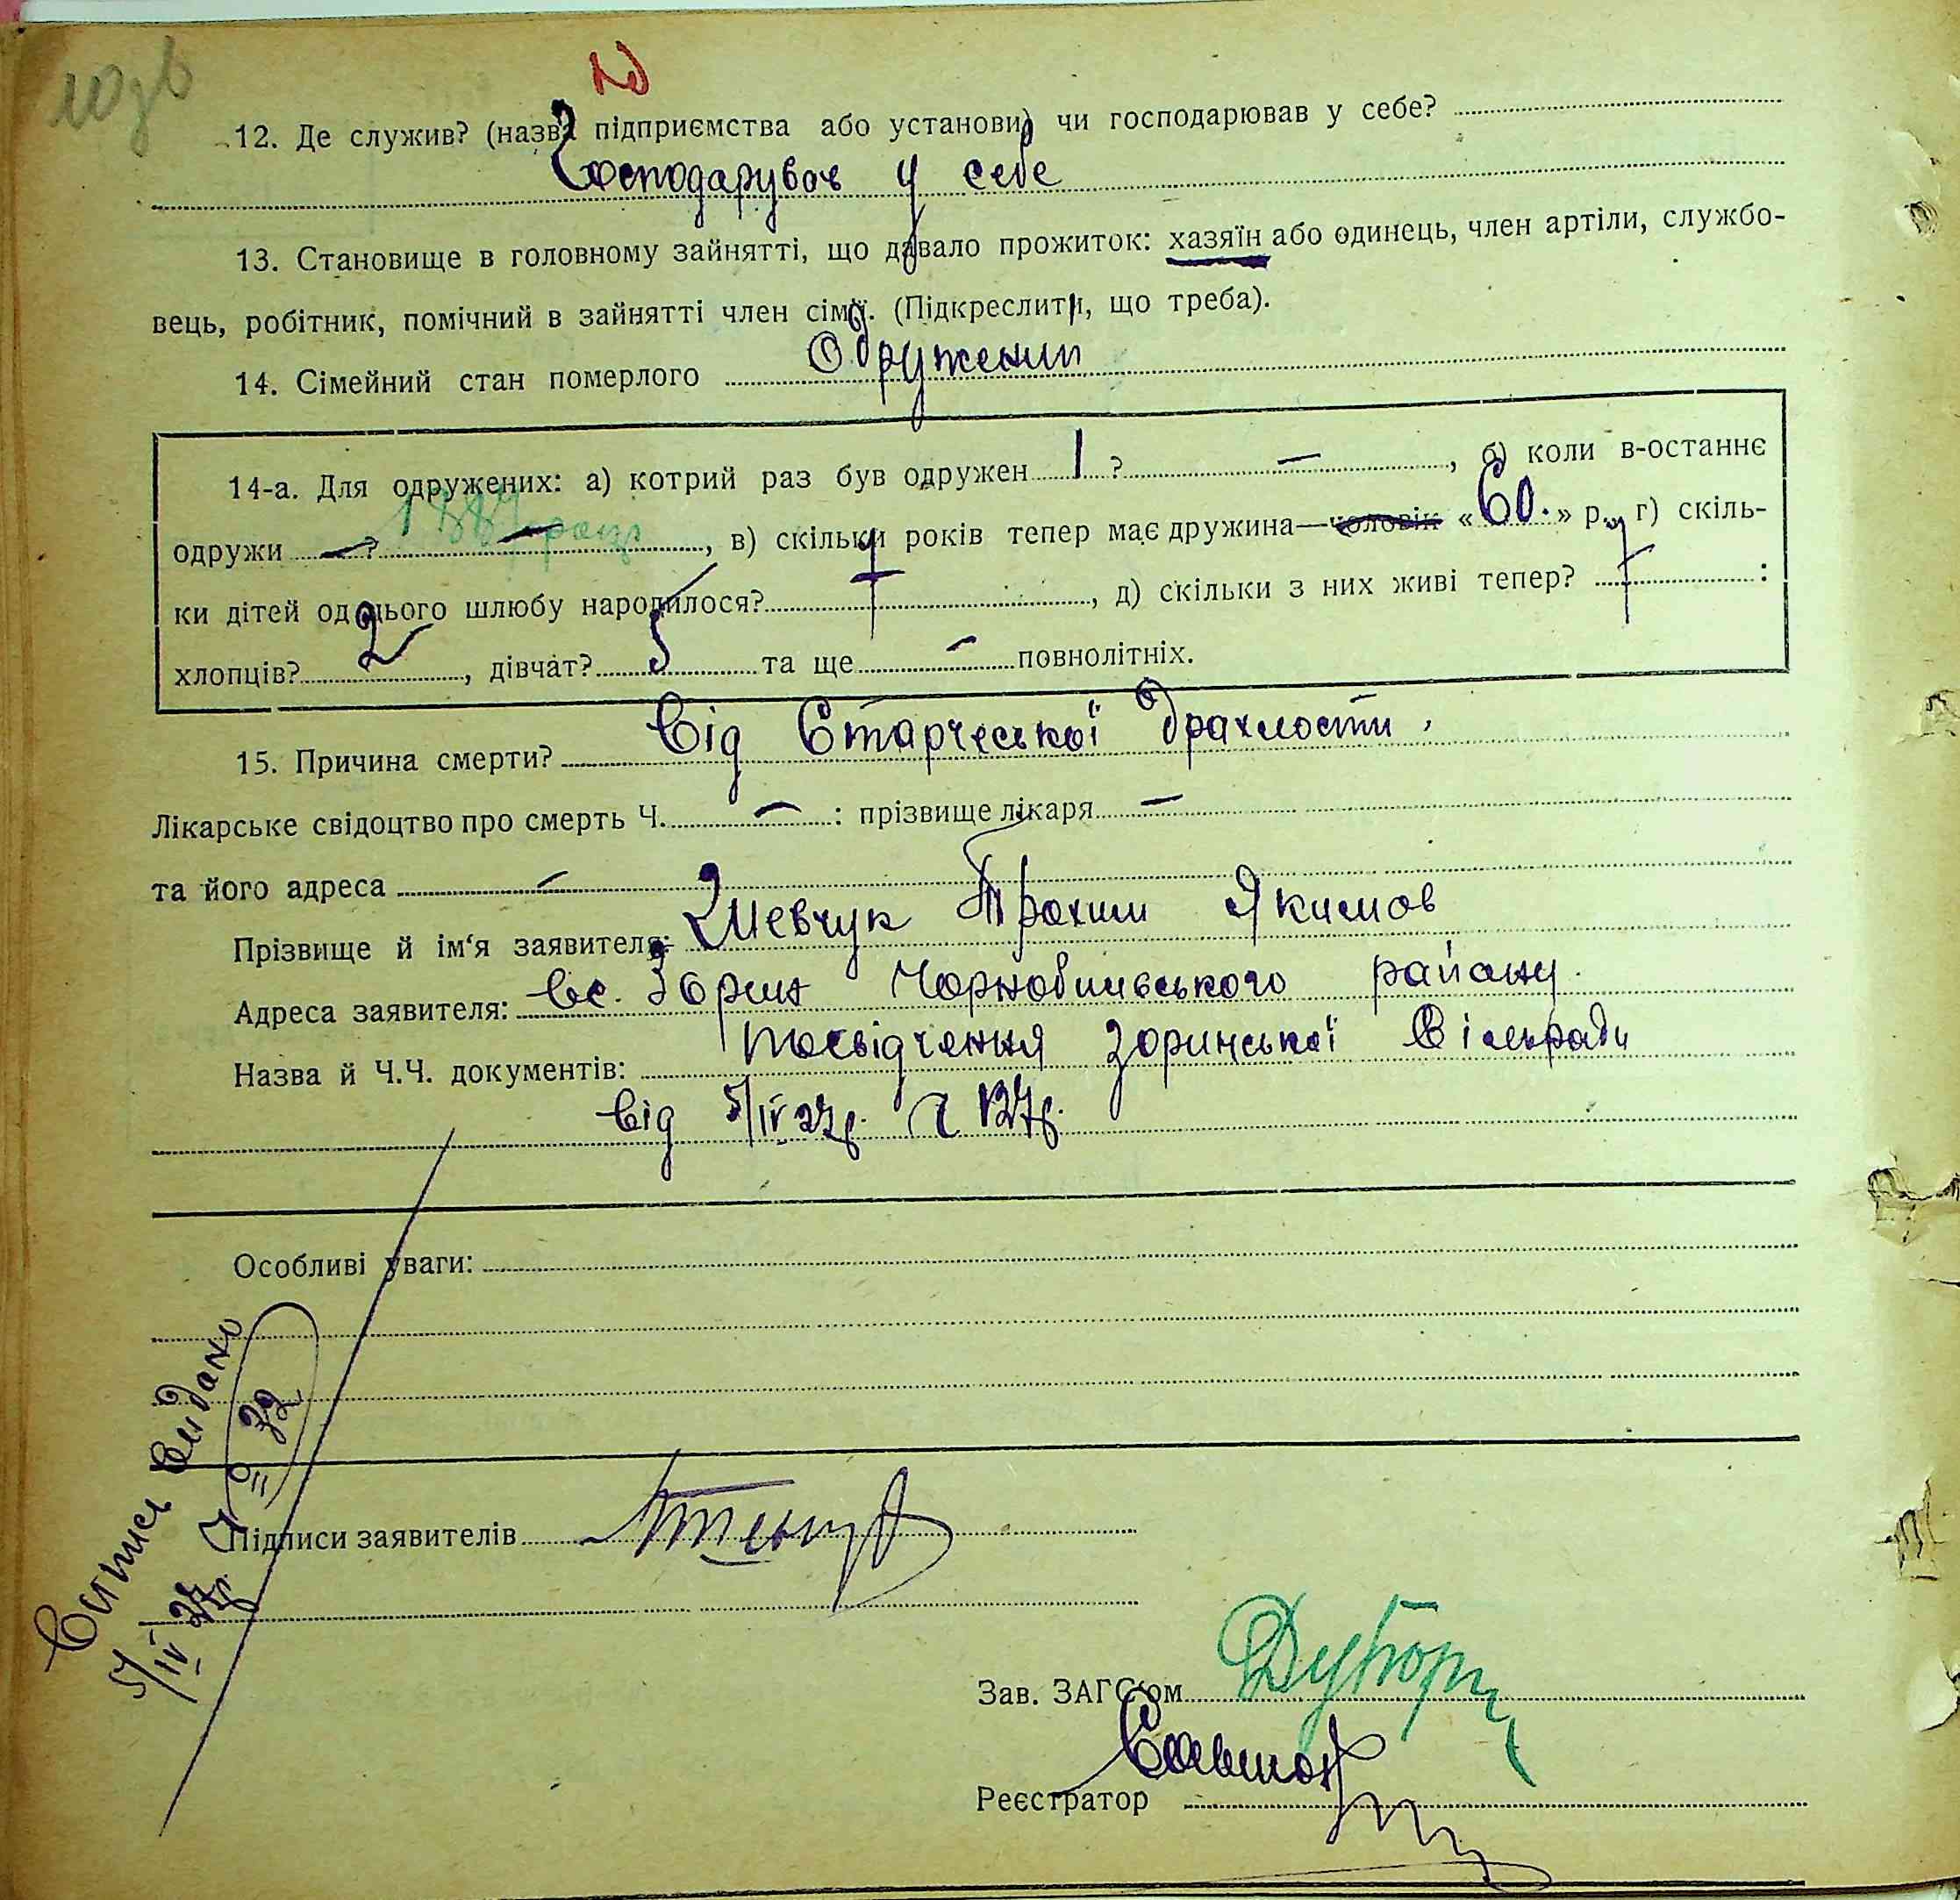 10зв
12. Де служив? (назва підприємства або установи) чи господарював у себе?
Господарував у себе
13. Становище в головному зайнятті, що давало прожиток: хазяїн або одинець, член артіли, службо-
вець, робітник, помічний в зайнятті член сім'ї. (Підкреслити, що треба).
14. Сімейний стан померлого Одружений
14-а. Для одружених: а) котрий раз був одружен 1 ? —, б) коли в-останнє
одружи —? 1887 року, в) скільки років тепер має дружина—чоловік «60.» р., г) скіль-
ки дітей од цього шлюбу народилося? 7, д) скільки з них живі тепер? 7 :
хлопців? 2, дівчат? 5 та ще — повнолітніх.
15. Причина смерти? Від Старческої драхлости.
Лікарське свідоцтво про смерть Ч. — : прізвище лікаря —
та його адреса —
Прізвище й ім'я заявителя: Шевчук Трохим Якимов
Адреса заявителя: в с. Зорин Чорнобильського району.
Назва й Ч.Ч. документів: посвідчення Зоринської Сільради
від 5/IV 27р. Ч 127р.
Особливі уваги:
Випис видано
5/IV 27р. Ч = 32
Підписи заявителів
Зав. ЗАГС'ом
Реєстратор